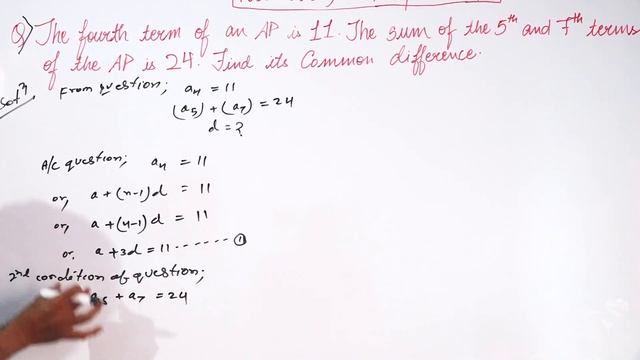 Q) The fourth term of an AP is 11. The sum of the 5th and 7th terms
of the AP is 24. Find its Common difference.
Solⁿ, From question; a₄ = 11
(a₅) + (a₇) = 24
d = ?
A/c question; a₄ = 11
or, a + (n-1)d = 11
or, a + (4-1)d = 11
or, a + 3d = 11 ------- ①
2nd condition of question;
a₅ + a₇ = 24